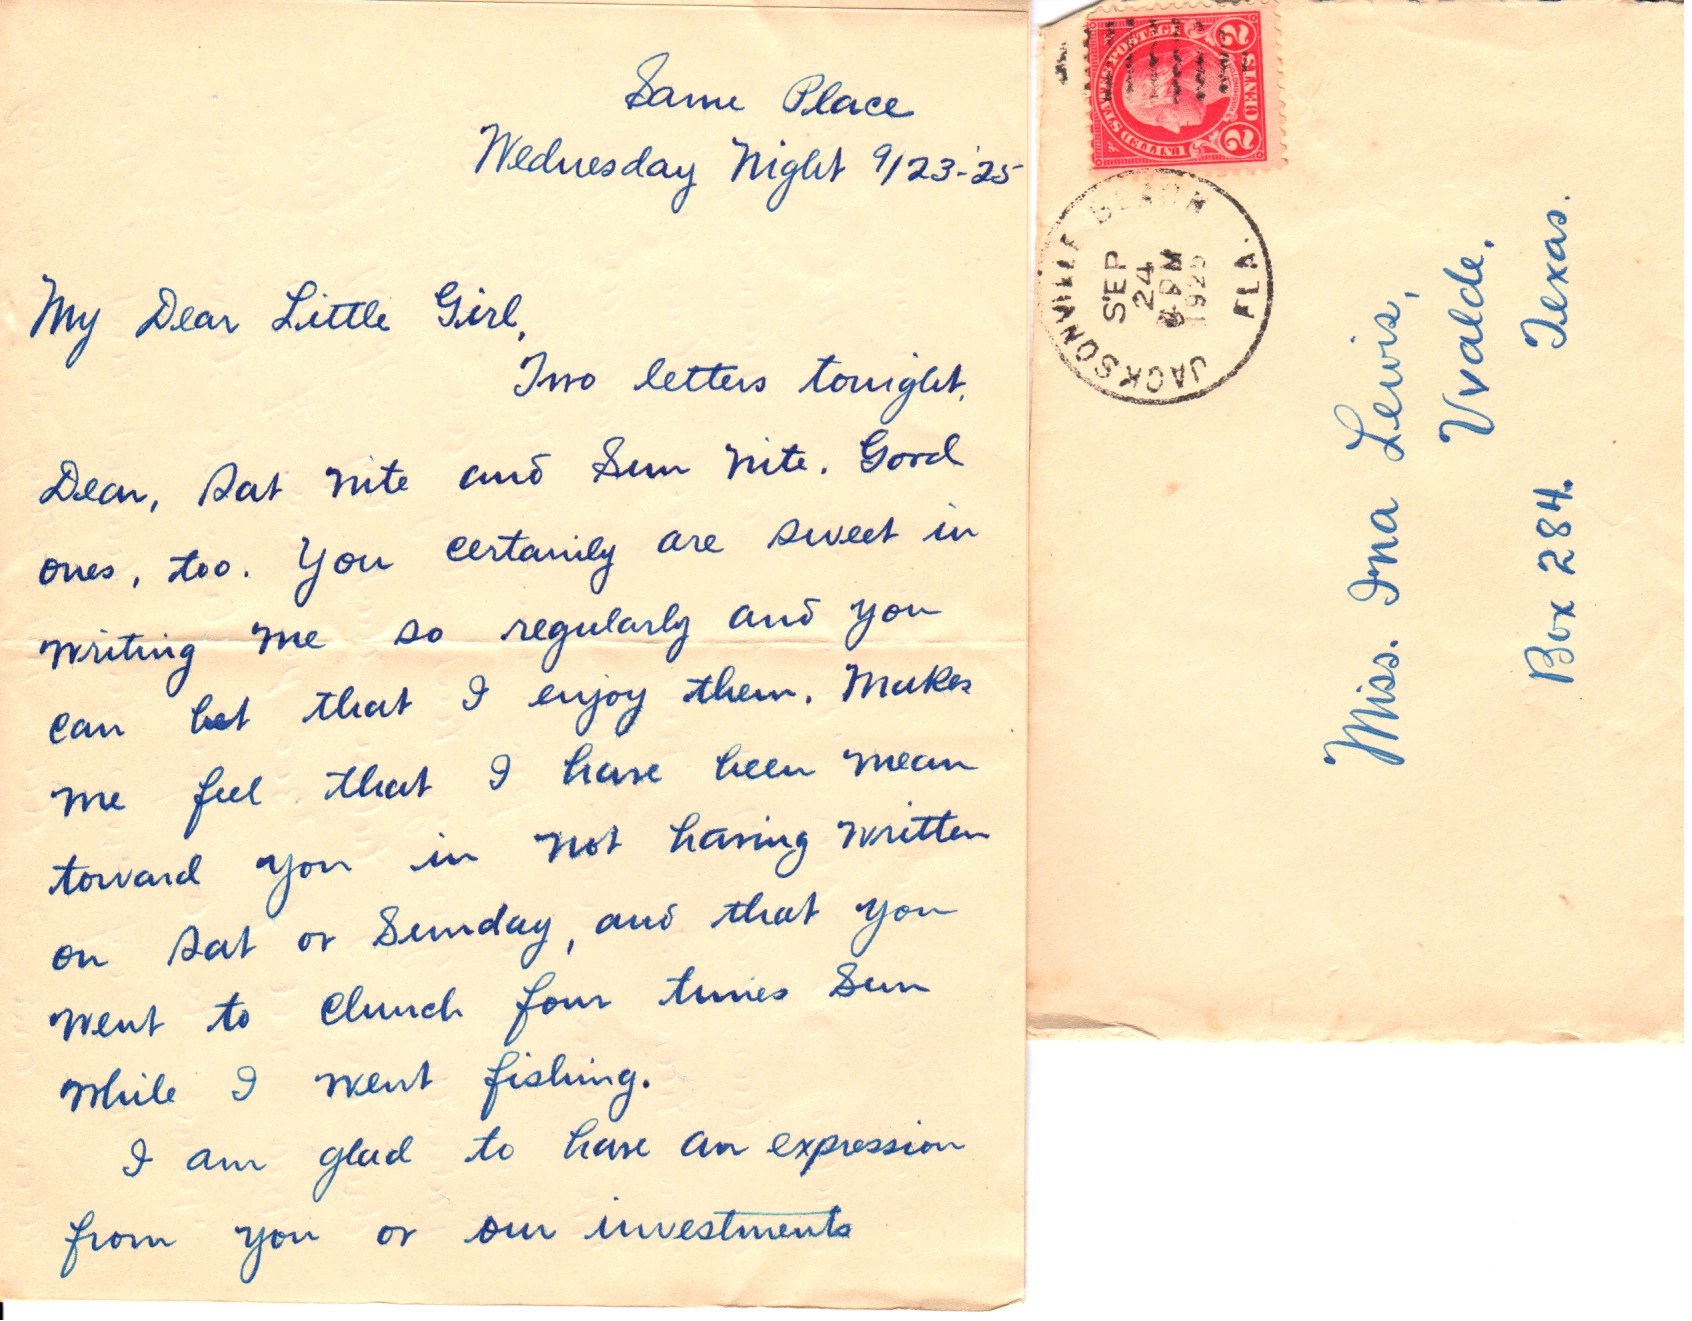 Same Place
Wednesday Night 9/23-'25
My Dear Little Girl,
Two letters tonight,
Dear, Sat Nite and Sun Nite. Good
ones, too. You certainly are sweet in
writing me so regularly and you
can bet that I enjoy them. Makes
me feel that I have been mean
toward you in not having written
on Sat or Sunday, and that you
went to church four times Sun
while I went fishing.
I am glad to have an expression
from you or our investments
UNITED STATES POSTAGE
WASHINGTON
2 CENTS 2
JACKSONVILLE BEACH
FLA.
SEP
24
PM
1925
Miss. Ina Lewis,
Uvalde,
Box 284. Texas.